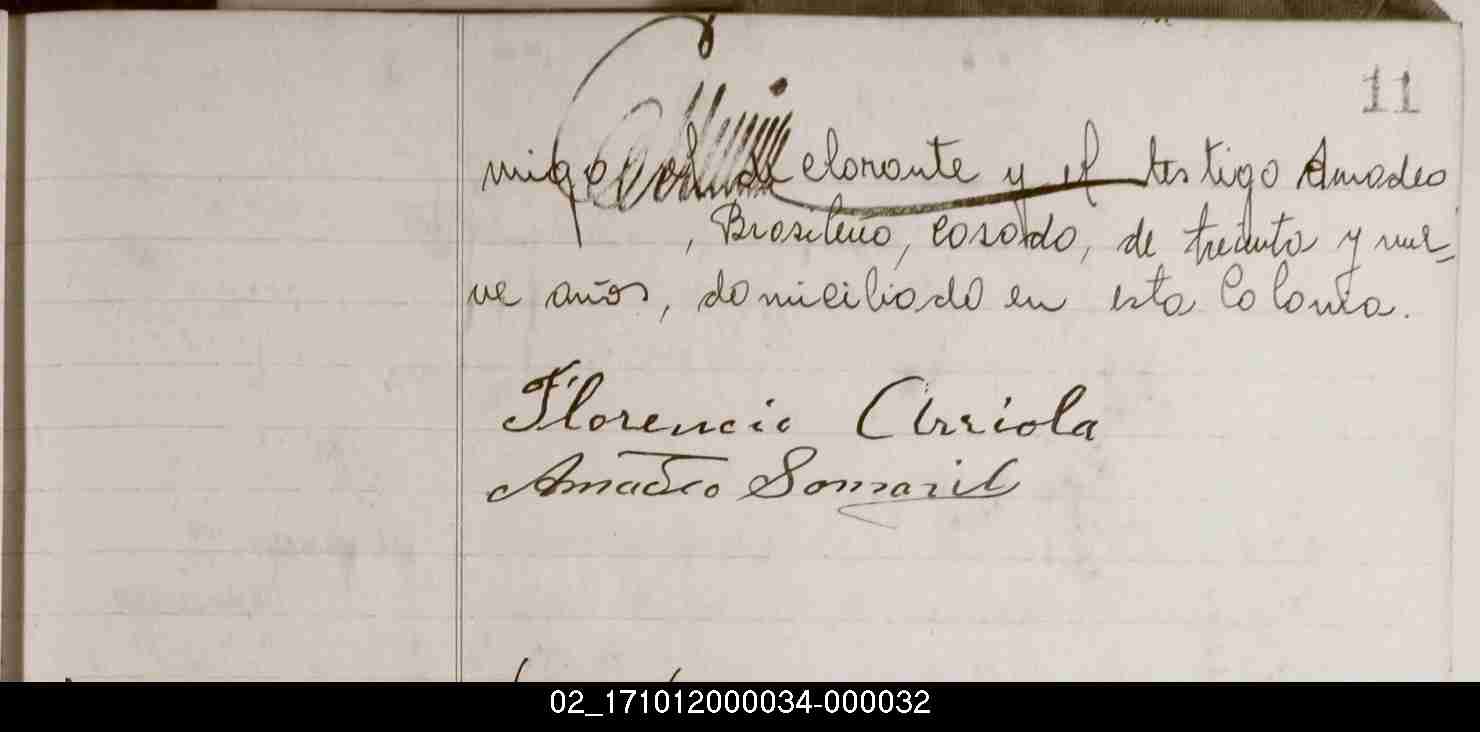 11
migo el declarante y el testigo Amadeo
, Brasilero, casado, de treinta y nue-
ve años, domiciliado en esta Colonia.
Florencio Arriola
Amadeo
02_171012000034-000032